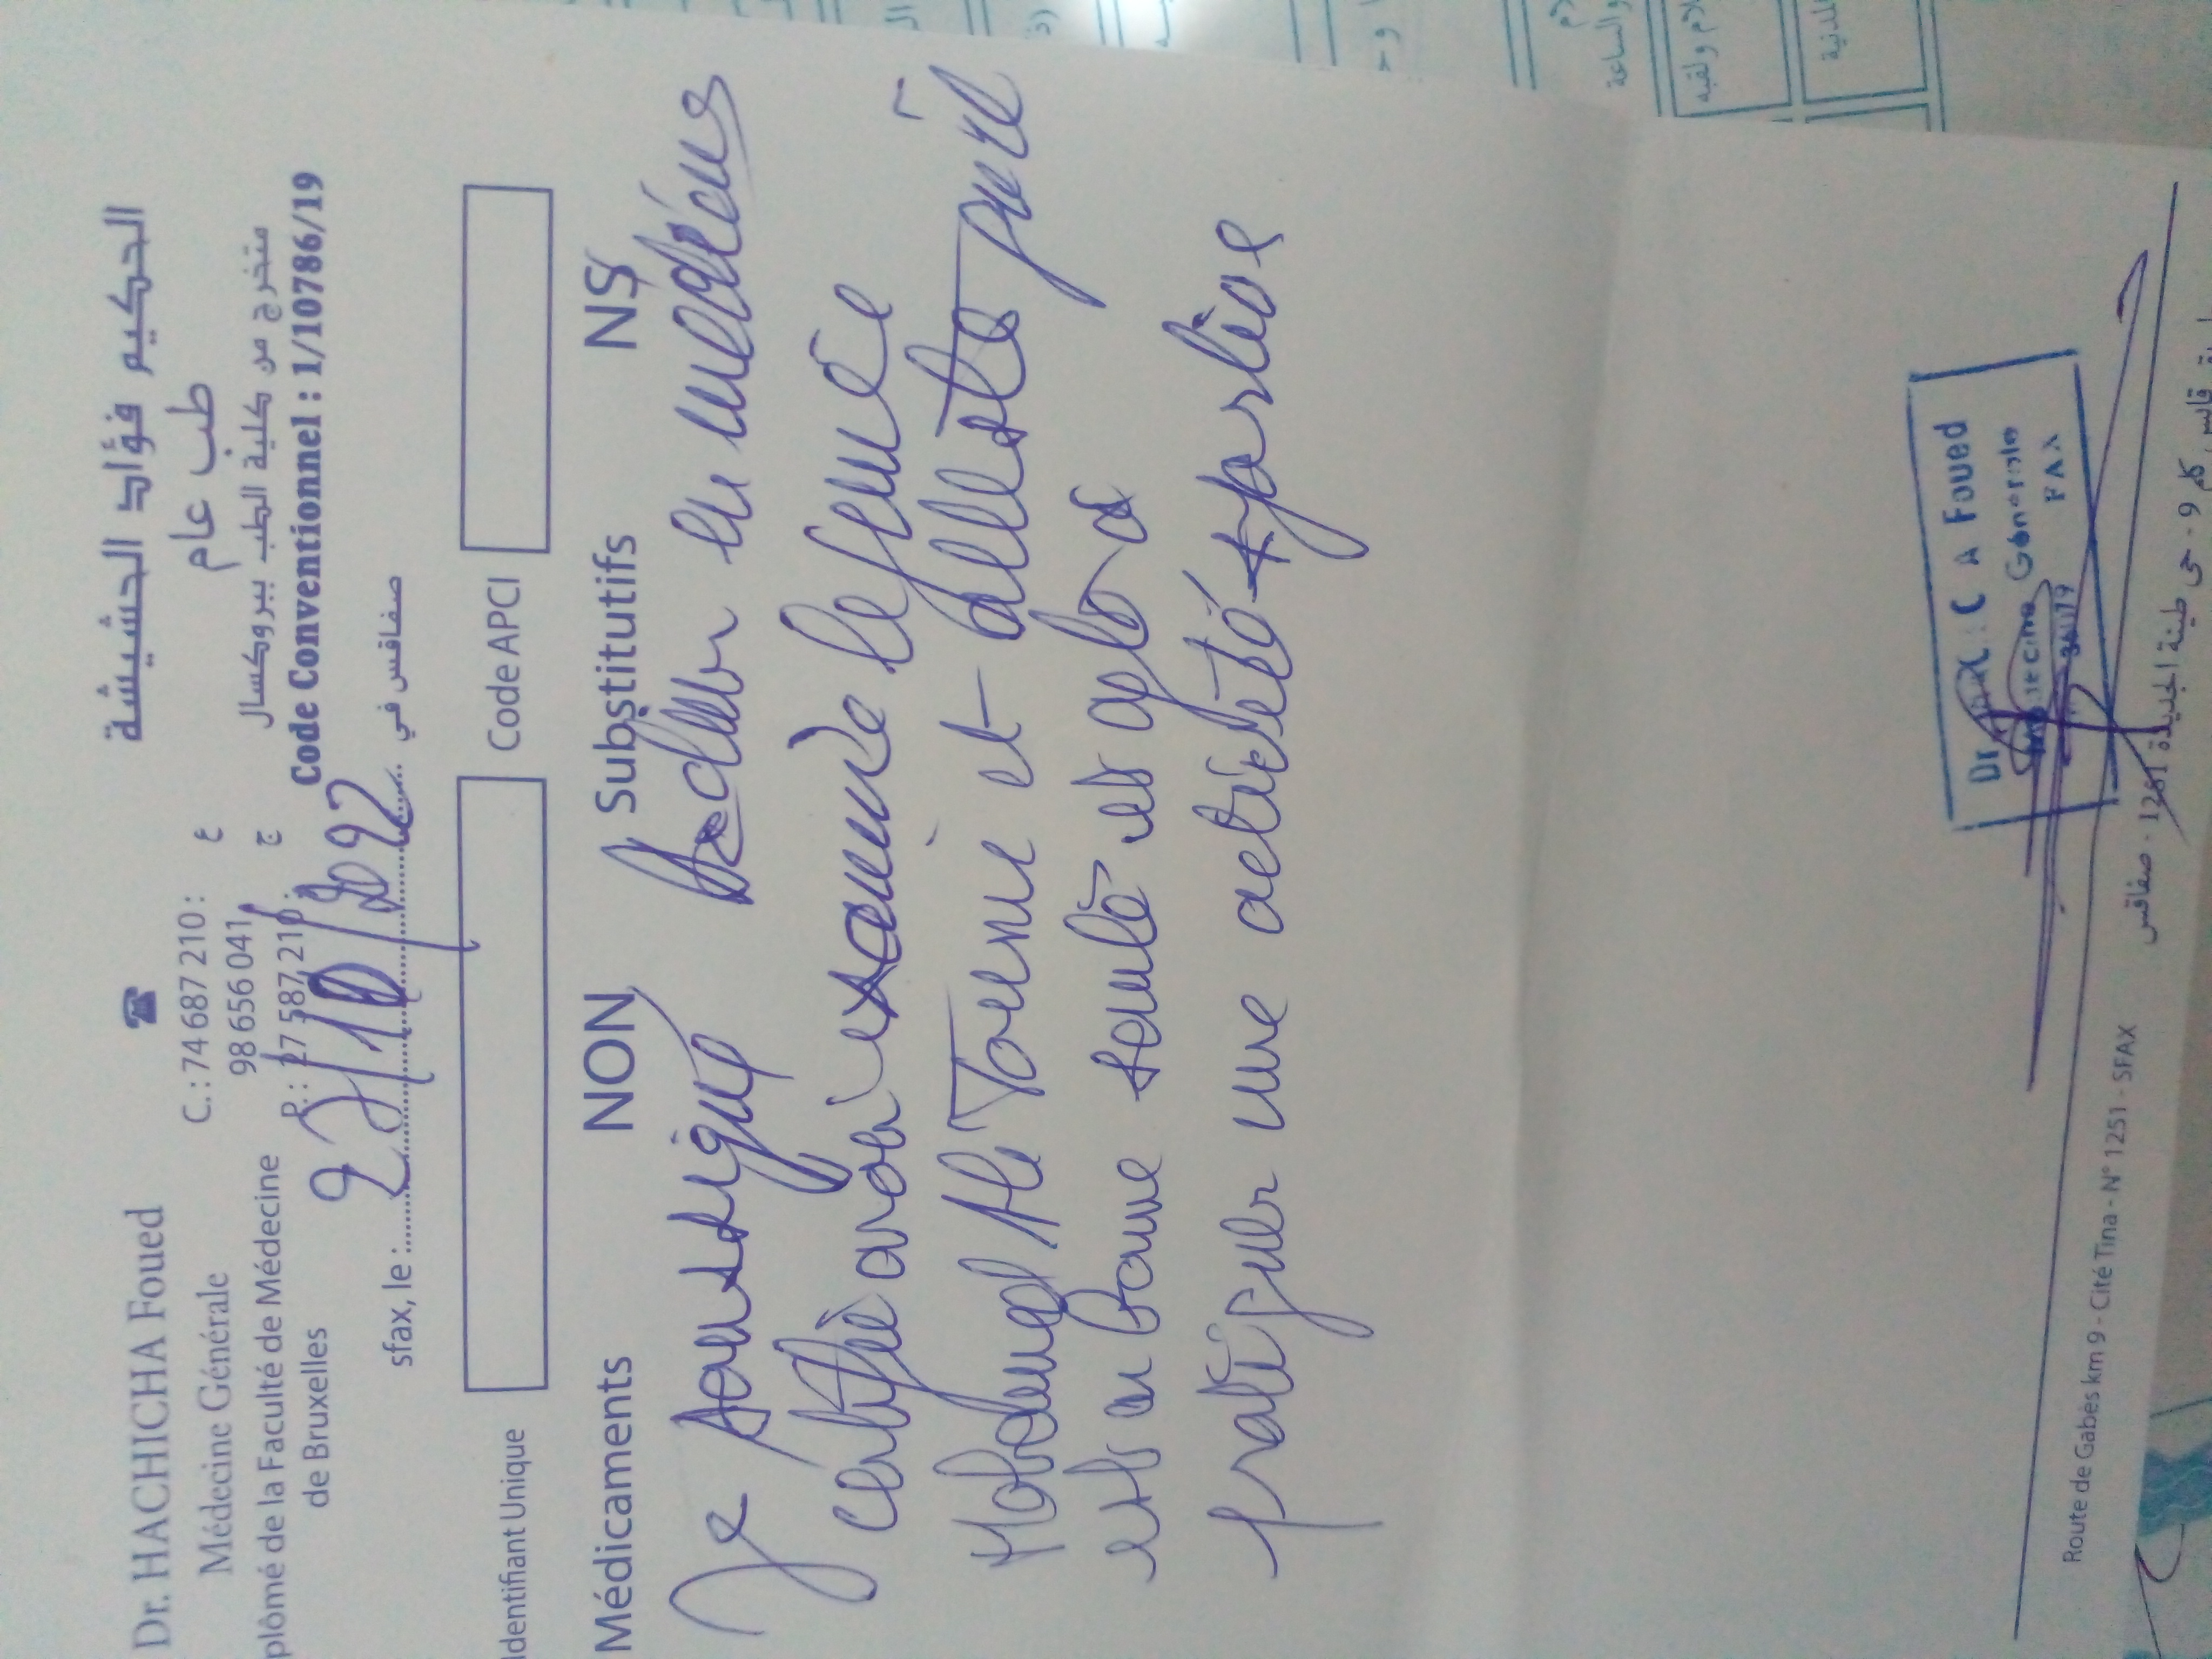 Dr. HACHICHA Foued
Médecine Générale
plômé de la Faculté de Médecine
de Bruxelles
C. : 74 687 210 : ع
98 656 041
P. : 27 587 210 : ج
الحكيم فؤاد الحشيشة
طب عام
متخرج من كلية الطب ببروكسال
Code Conventionnel : 1/10786/19
sfax, le : صفاقس في
Identifiant Unique
Code APCI
Médicaments NON Substitutifs NS
Je soussigné Docteur en médecine
certifie avoir examiné le jeune
et atteste qu'il
est en bonne santé et apte à
pratiquer une activité sportive
Dr Foued
Générale
Route de Gabès km 9 - Cité Tina - N° 1251 - SFAX
كم 9 - حي طينة الجديدة 1251 - صفاقس